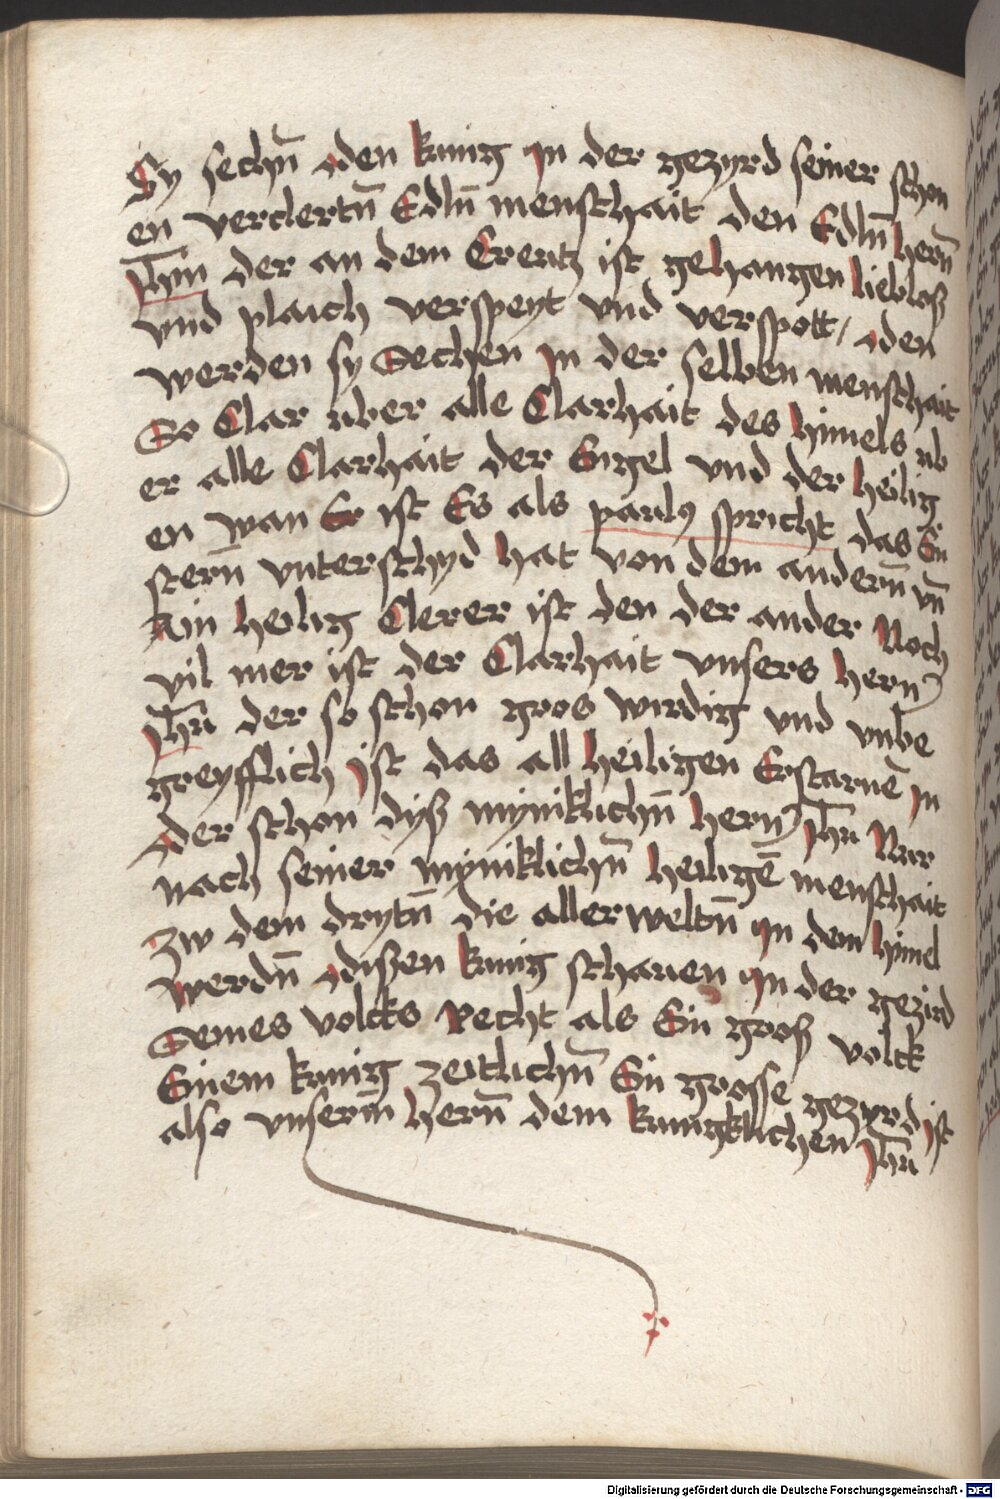 Sy sechn̄ den kunig Jn der gezyrd seiner schon
en verclertn̄ Edln̄ menschait den Edln̄ hern̄
Jhm̄ der an dem Crewtz ist gehangen liebloß
vnd plaich verspeyt vnd verspott / den
werden sy Sechen Jn der selben menschait
So Clar vber alle Clarhait des himels vb
er alle Clarhait der Engel vnd der heilig
en wan Er ist Es als paulꝰ spricht das Ein
stern̄ vnterschyd hat von dem andern̄ vn̄
Ain heilig Clerer ist den der ander Noch
vil mer ist der Clarhait vnsers hern
Jhū der so schon gros wirdig vnd vnbe
greyfflich Jst das all heiligen Erstarnē Jn
der schon dyß mÿniklichn̄ hern Jhū Nur
nach seiner mÿniklichn̄ heiligē menschait
Zw dem drytn̄ die aller weltn̄ Jn dem himel
werdn̄ dißen kunig schauen Jn der gezird
Seines volcks Recht als Ein groß volck
Einem kunig zeitlichn̄ Ein grosse gezyrd ist
also vnserm̄ hern̄ dem kunigklichen Jhū
Digitalisierung gefördert durch die Deutsche Forschungsgemeinschaft - DFG